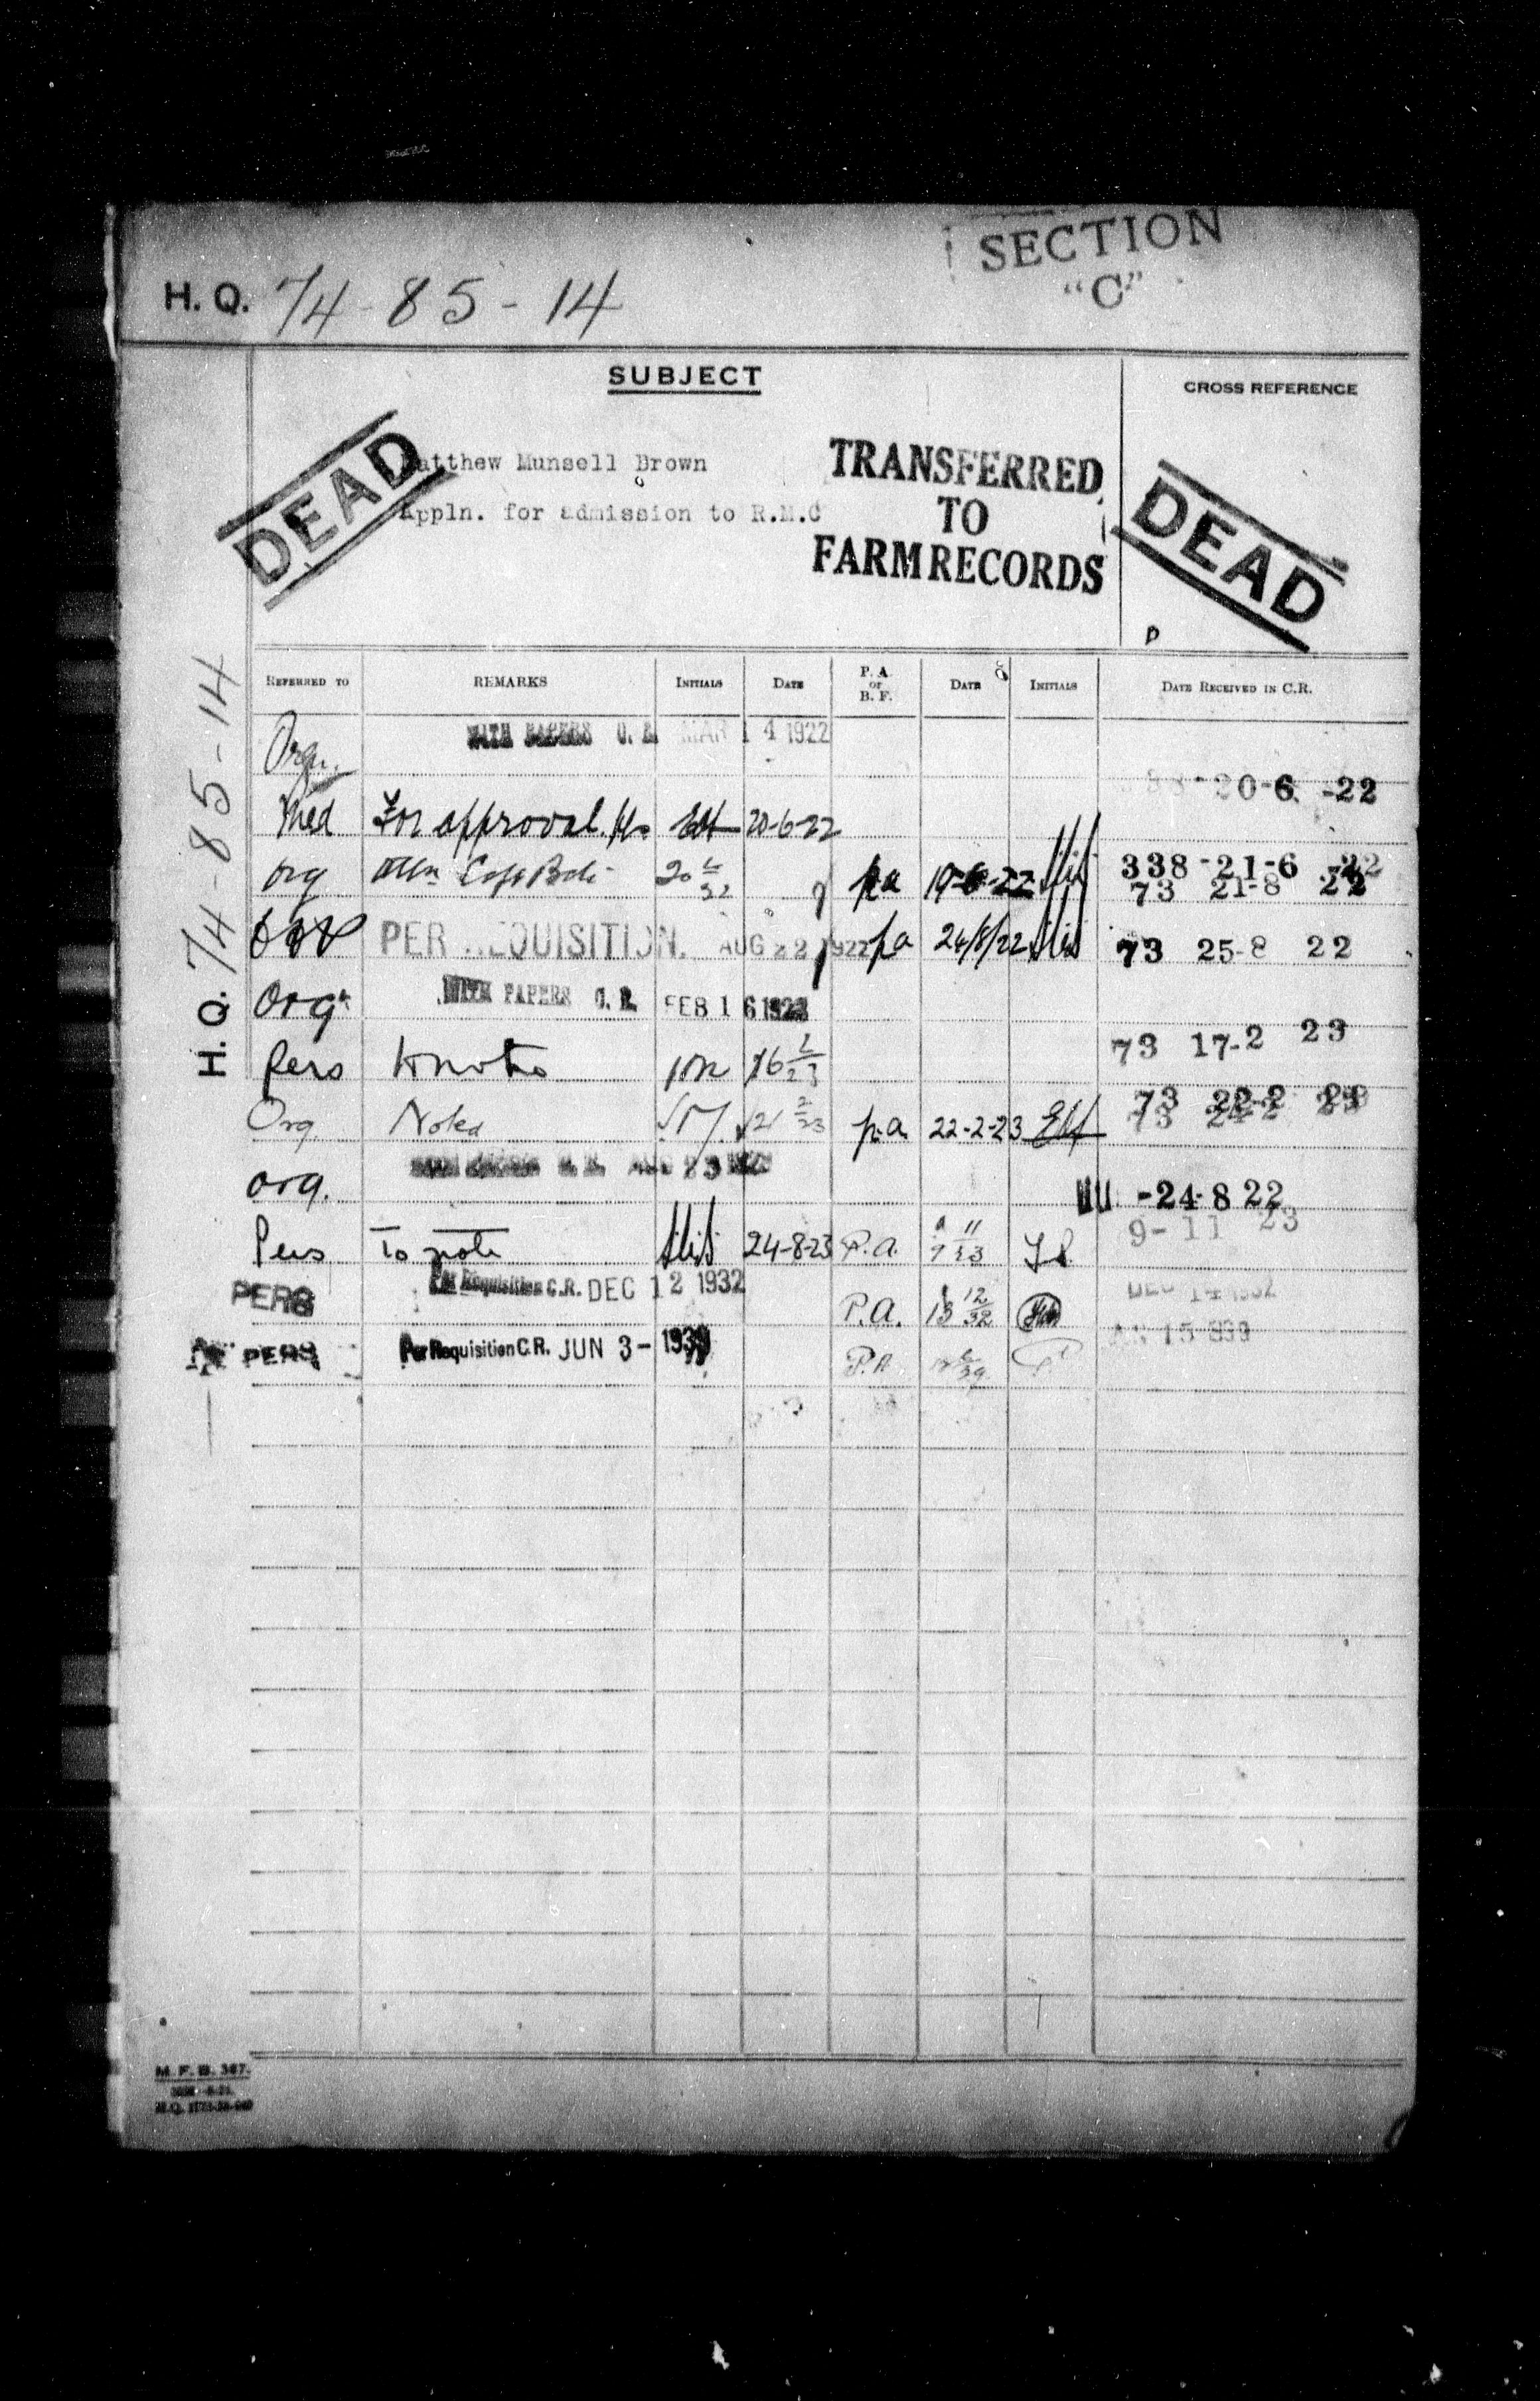 SECTION
"C"
H. Q. 74-85-14
SUBJECT
CROSS REFERENCE
DEAD
Matthew Munsell Brown
Appln. for admission to R.M.C
TRANSFERRED
TO
FARM RECORDS
DEAD
H.Q. 74-85-14
REFERRED TO REMARKS INITIALS DATE P. A. or B. F. DATE INITIALS DATE RECEIVED IN C.R.
Orgn. WITH PAPERS C. R. MAR 14 1922
20-6. -22
Med For approval pls 20-6-22
338-21-6 -22
Org pa 19-6-22
73 21-8 22
PER REQUISITION. AUG 22 1922 pa 24/8/22
73 25-8 22
Org WITH PAPERS C. R. FEB 16 1923
73 17-2 23
Pers to note 16 2/23
73 22-2 23
Org. Noted 21 2/23 p.a. 22-2-23
org.
-24-8 22
9-11 23
Pers To note 24-8-23 P.a. 9 11/23
PERS Per Requisition C.R. DEC 12 1932 P.A. 13 12/32
DEC 14 1932
PERS Per Requisition C.R. JUN 3- 1939 P.A.
M. F. B. 367.